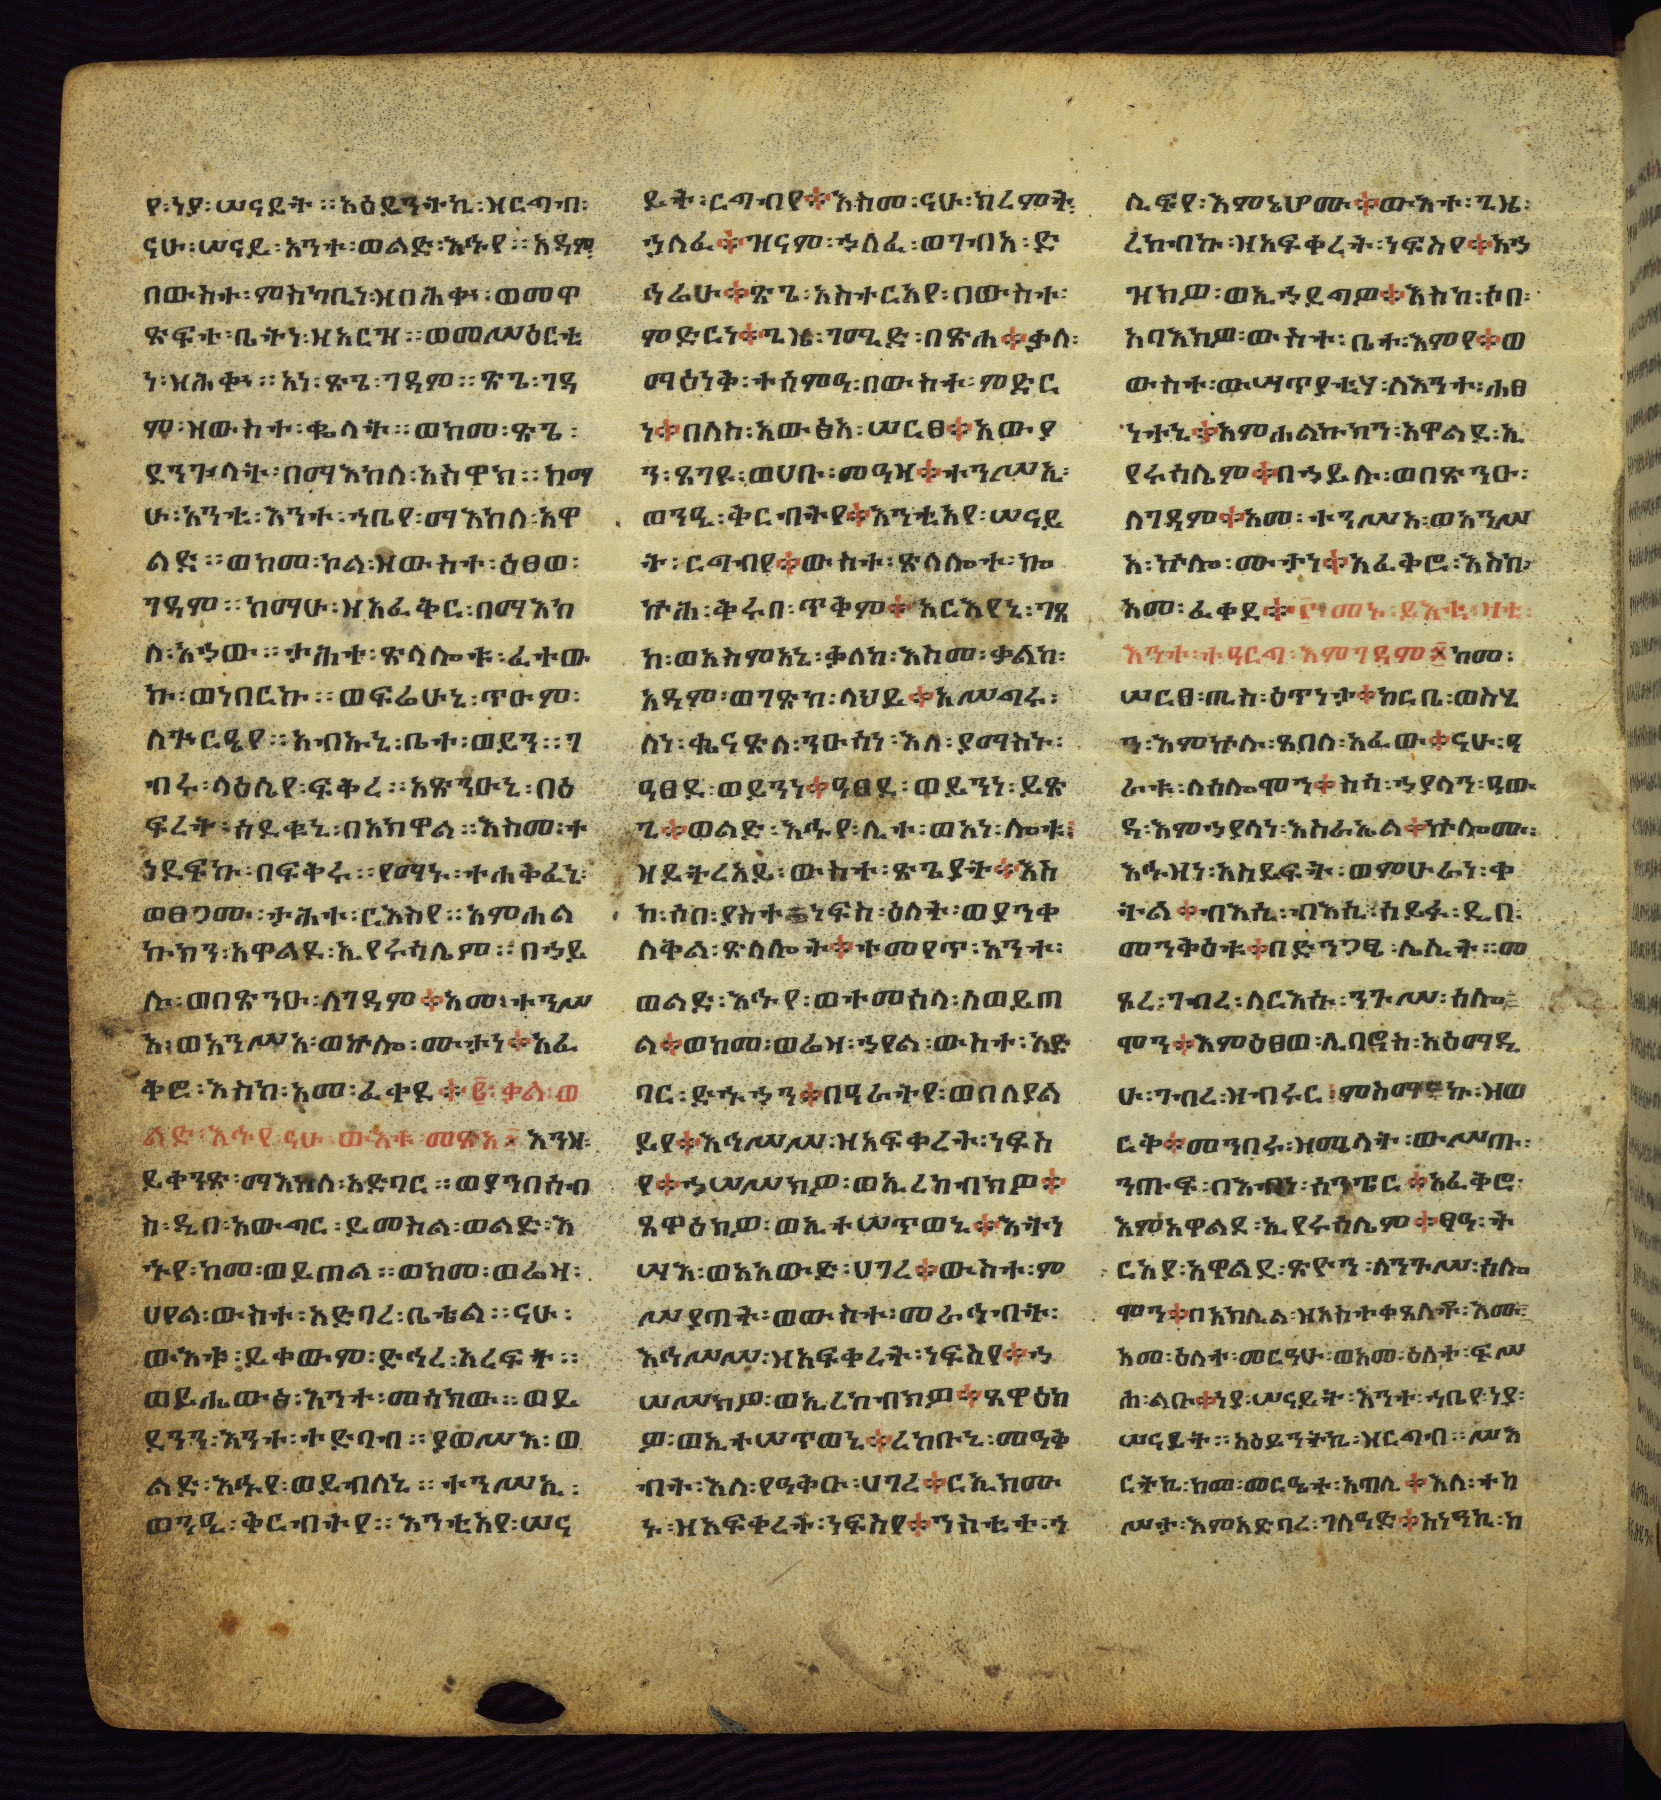 የ፡ነያ፡ሠናይት።አዕይንትኪ፡ዘርግብ፡
ናሁ፡ሠናይ፡አንተ፡ወልድ፡እኁየ።አዳም፡
በውስተ፡ምስካቢነ፡ዘበሕቁ፡ወመዋ
ጽፍተ፡ቤትነ፡ዘአርዝ።ወመሠዕርቲ
ነ፡ዘሕቁ።አነ፡ጽጌ፡ገዳም።ጽጌ፡ገዳ
ም፡ዘውስተ፡ቈላት።ወከመ፡ጽጌ፡
ደንጐላት፡በማእከለ፡አስዋክ።ከማ
ሁ፡አንቲ፡እንተ፡ኀቤየ፡ማእከለ፡አዋ
ልድ።ወከመ፡ኮል፡ዘውስተ፡ዕፀወ፡
ገዳም።ከማሁ፡ዘአፈቅር፡በማእከ
ለ፡አኃው።ታሕተ፡ጽላሎቱ፡ፈተው
ኩ፡ወነበርኩ።ወፍሬሁኒ፡ጥዑም፡
ለጕርዔየ።አብኡኒ፡ቤተ፡ወይን።ግ
ብሩ፡ላዕሌየ፡ፍቅረ።አጽንዑኒ፡በዕ
ፍረት፡ሰደቁኒ፡በአክዋል።እስመ፡ተ
ነደፍኩ፡በፍቅሩ።የማኑ፡ተሐቅፈኒ፡
ወፀጋሙ፡ታሕተ፡ርእስየ።አምሐል
ኩክን፡አዋልደ፡ኢየሩሳሌም።በኃይ
ሉ፡ወበጽንዑ፡ለገዳም፡እመ፡ተንሥ
እ፡ወአንሥአ፡ወኵሎ፡ሙታነ፡አፈ
ቅሮ፡እስከ፡አመ፡ፈቀደ፡፪፡ቃል፡ወ
ልድ፡እኁየ፡ናሁ፡ውእቱ፡መጽአ፡እንዘ፡
ይቀንጽ፡ማእከለ፡አድባር።ወያንበሰብ
ስ፡ዲበ፡አውግር፡ይመስል፡ወልድ፡እ
ኁየ፡ከመ፡ወይጠል።ወከመ፡ወሬዛ፡
ሀየል፡ውስተ፡አድባረ፡ቤቴል።ናሁ፡
ውእቱ፡ይቀውም፡ድኅረ፡አረፍት።
ወይሔውፅ፡እንተ፡መሳክው።ወይ
ደንን፡እንተ፡ተድባብ።ያወሥእ፡ወ
ልድ፡እኁየ፡ወይብለኒ።ተንሥኢ፡
ወንዒ፡ቅርብትየ።እንቲአየ፡ሠና
ይት፡ርግብየ፡እስመ፡ናሁ፡ክረምት፡
ኃለፈ፡ዝናም፡ኃለፈ፡ወገብአ፡ድ
ኅሬሁ፡ጽጌ፡አስተርአየ፡በውስተ፡
ምድርነ፡ጊዜ፡ገሚድ፡በጽሐ፡ቃለ፡
ማዕነቅ፡ተሰምዓ፡በውስተ፡ምድር
ነ፡በለስ፡አውፅአ፡ሠርፀ፡አውያ
ን፡ጸገዩ፡ወሀቡ፡መዓዛ፡ተንሥኢ፡
ወንዒ፡ቅርብትየ፡እንቲአየ፡ሠናይ
ት፡ርግብየ፡ውስተ፡ጽላሎተ፡ኰ
ኵሕ፡ቅሩበ፡ጥቅም፡አርእየኒ፡ገጸ
ከ፡ወአስምእኒ፡ቃለከ፡እስመ፡ቃልከ፡
አዳም፡ወገጽከ፡ላህይ፡አሥግሩ፡
ለነ፡ቈናጽለ፡ንዑሳነ፡እለ፡ያማስኑ፡
ዓፀደ፡ወይንነ፡ዓፀደ፡ወይንነ፡ይጽ
ጊ፡ወልድ፡እኁየ፡ሊተ፡ወአነ፡ሎቱ፡
ዘይትረአይ፡ውስተ፡ጽጌያት፡እስ
ከ፡ሰበ፡ያስተ፡ነፍስ፡ዕለት፡ወያንቀ
ለቅል፡ጽላሎት፡ተመየጥ፡አንተ፡
ወልድ፡እኁየ፡ወተመሰላ፡ለወይጠ
ል፡ወከመ፡ወሬዛ፡ኃየል፡ውስተ፡አድ
ባር፡ድኁኃን፡በዓራትየ፡ወበለያል
ይየ፡እኅሠሥ፡ዘአፍቀረት፡ነፍስ
የ፡ኃሠሥክዎ፡ወኢረከብክዎ፡
ጸዋዕክዎ፡ወኢተሠጥወኒ፡እትነ
ሣእ፡ወእአውድ፡ሀገረ፡ውስተ፡ም
ሥያጣት፡ወውስተ፡መራኅብት፡
እኅሠሥ፡ዘአፍቀረት፡ነፍስየ፡ኃ
ሠሥክዎ፡ወኢረከብክዎ፡ጸዋዕክ
ዎ፡ወኢተሠጥወኒ፡ረከቡኒ፡መዓቅ
ብት፡እለ፡የዓቅቡ፡ሀገረ፡ርኢክሙ
ኑ፡ዘአፍቀረት፡ነፍስየ፡ንስቲተ፡ኀ
ሊፍየ፡እምኔሆሙ፡ውእተ፡ጊዜ፡
ረከብኩ፡ዘአፍቀረት፡ነፍስየ፡አኃ
ዝክዎ፡ወኢኃደግዎ፡እስከ፡ሶበ፡
አባእክዎ፡ውስተ፡ቤተ፡እምየ፡ወ
ውስተ፡ውሣጥያቲሃ፡ለእንተ፡ሐፀ
ነተኒ፡አምሐልኩክን፡አዋልደ፡ኢ
የሩሳሌም፡በኃይሉ፡ወበጽንዑ፡
ለገዳም፡እመ፡ተንሥአ፡ወአንሥ
አ፡ኵሎ፡ሙታነ፡አፈቅሮ፡እስከ፡
አመ፡ፈቀደ፡፫፡መኑ፡ይእቲ፡ዛቲ፡
እንተ፡ተዓርግ፡እምገዳም፡ከመ፡
ሠርፀ፡ጢስ፡ዕጥነታ፡ከርቤ፡ወስሂ
ን፡እምኵሉ፡ጸበለ፡አፈው፡ናሁ፡ዓ
ራቱ፡ለሰሎሞን፡ስሳ፡ኃያላን፡ዓው
ዱ፡እምኃያላነ፡እስራኤል፡ኵሎሙ፡
እኁዛነ፡አስይፍት፡ወምሁራነ፡ቀ
ትል፡ብእሲ፡ብእሲ፡ሰይፉ፡ዲበ፡
መንቅዕቱ፡በድንጋፄ፡ሌሊት።መ
ጾረ፡ገብረ፡ለርእሱ፡ንጉሥ፡ሰሎ
ሞን፡እምዕፀወ፡ሊባኖስ፡አዕማዲ
ሁ፡ገብረ፡ዘብሩር፡ምስማኩ፡ዝወ
ርቅ፡መንበሩ፡ዝሜላት፡ውሥጡ፡
ንጡፍ፡በእብነ፡ሰንፔር፡አፈቅሮ፡
እምአዋልደ፡ኢየሩሳሌም፡ፃዓ፡ት
ርአያ፡አዋልደ፡ጽዮን፡ለንጉሥ፡ሰሎ
ሞን፡በአክሊል፡ዘአስተቀጸለቶ፡እሙ፡
አመ፡ዕለተ፡መርዓሁ፡ወአመ፡ዕለተ፡ፍሥ
ሐ፡ልቡ፡ነያ፡ሠናይት፡እንተ፡ኀቤየ፡ነያ፡
ሠናይት።አዕይንትኪ፡ዘርግብ።ሥእ
ርትኪ፡ከመ፡መርዔተ፡አጣሊ፡እለ፡ተከ
ሥታ፡እምአድባረ፡ገለዓድ፡አነዓኪ፡ከ